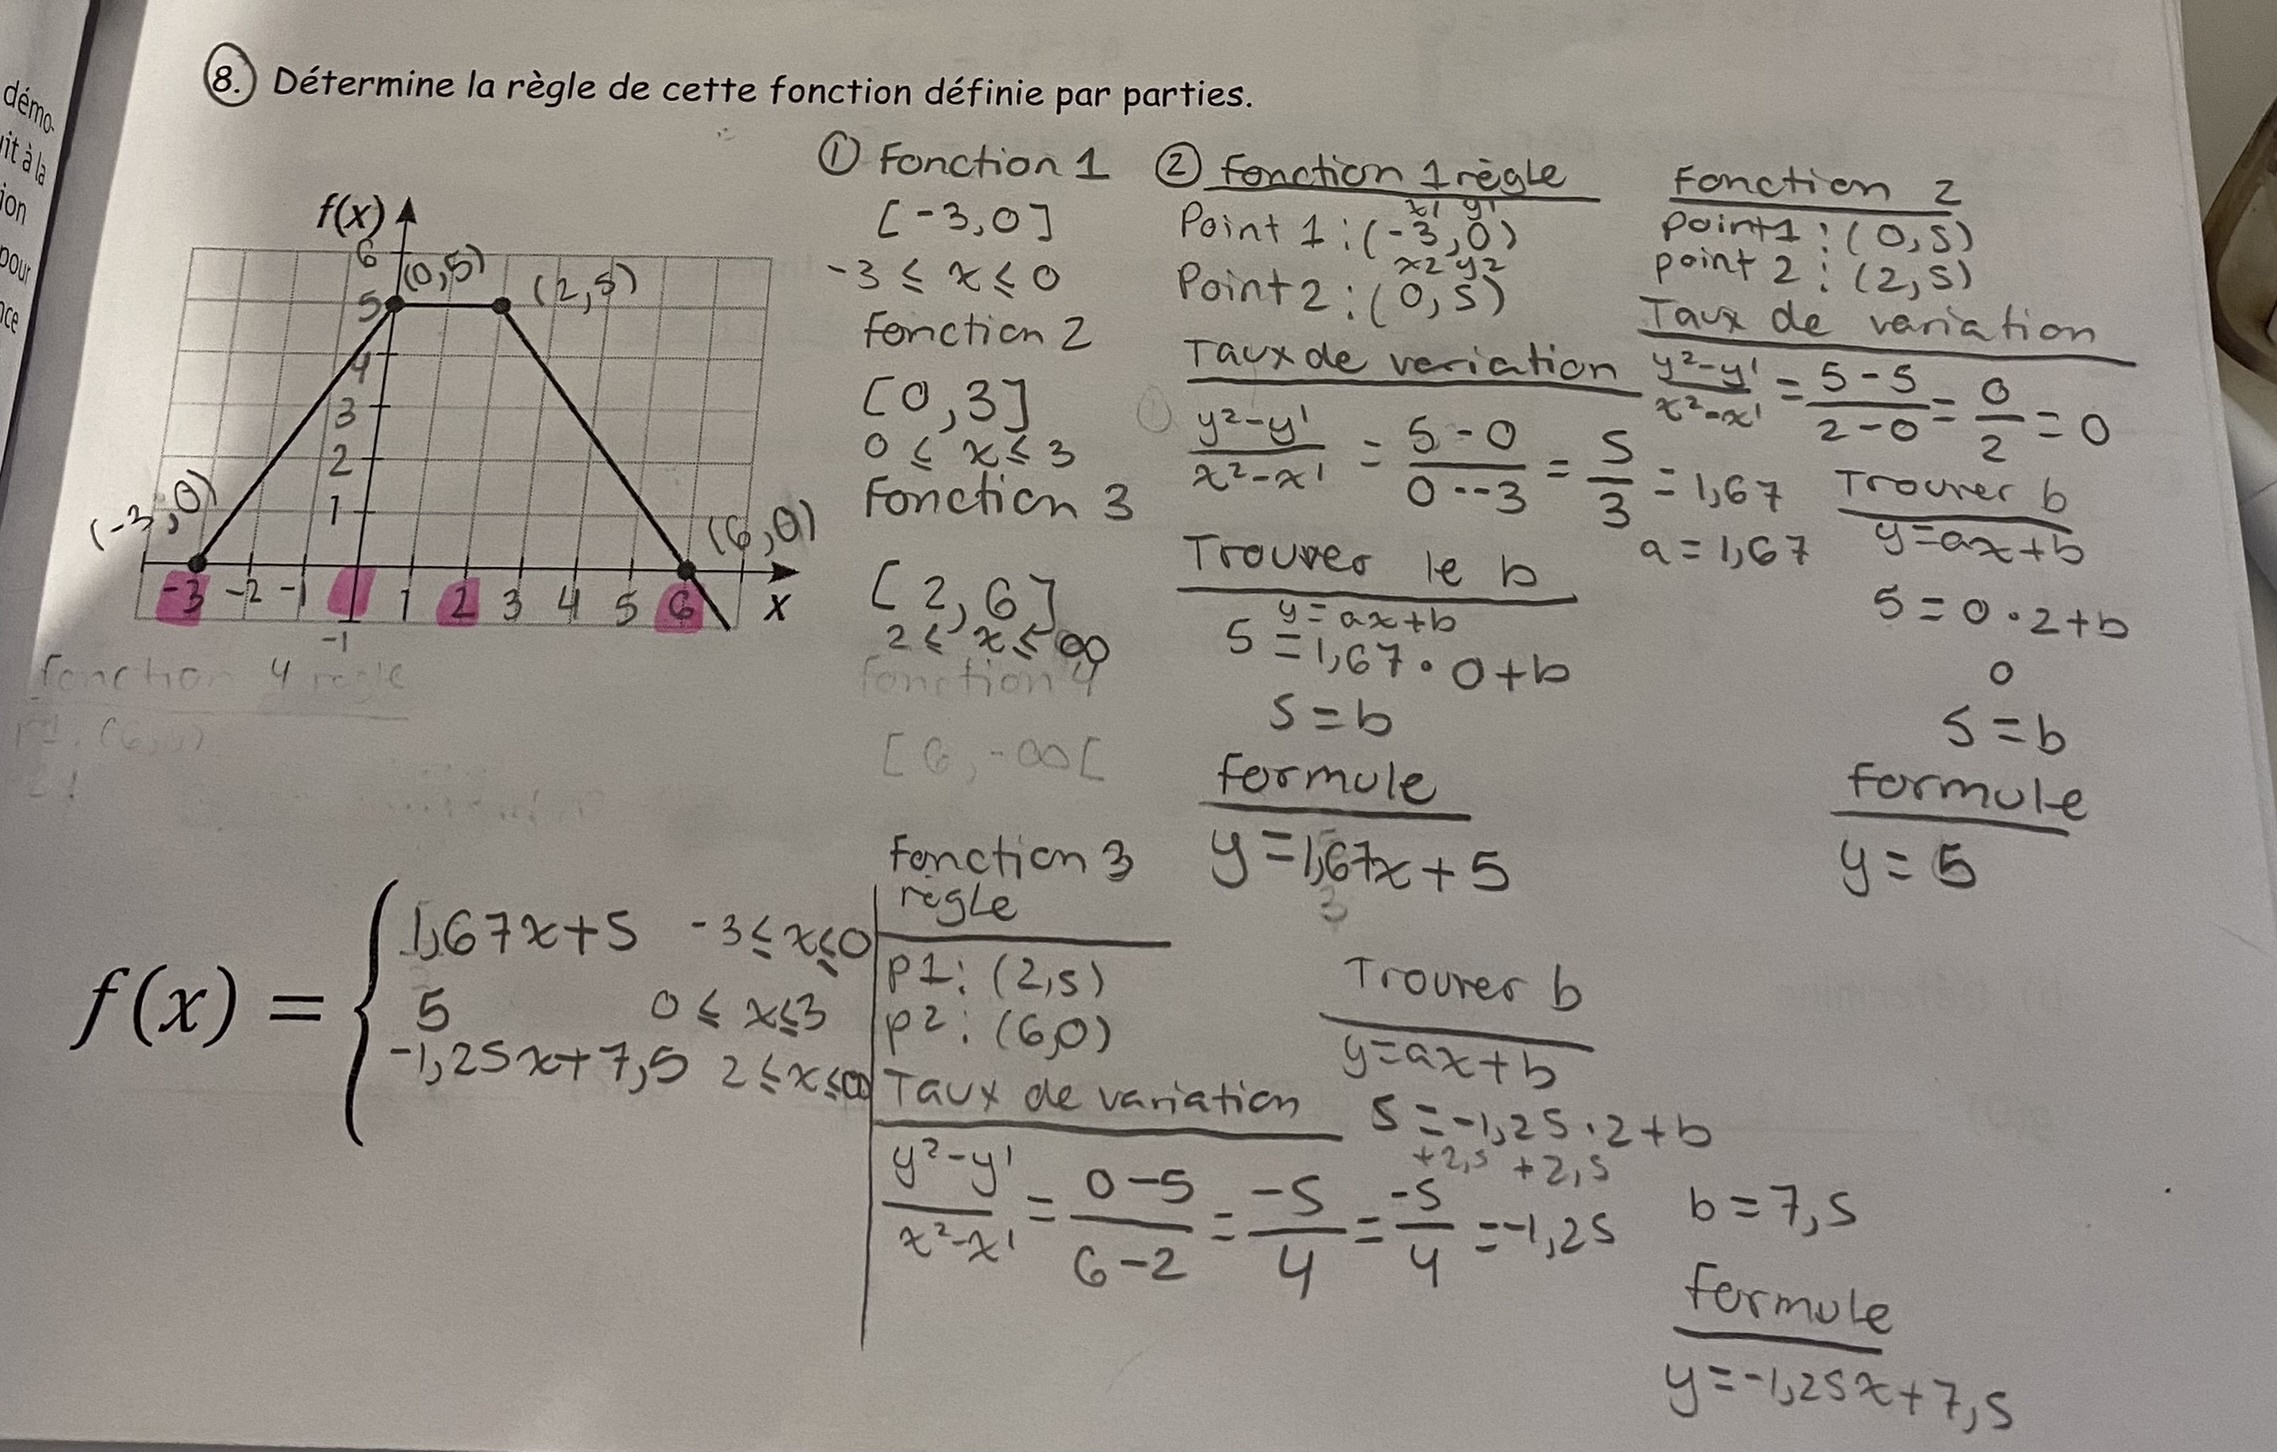 démo-
uit à la
ion
pour
nce
8. Détermine la règle de cette fonction définie par parties.
f(x)
6
5
4
3
2
1
-3 -2 -1 1 2 3 4 5 6 x
-1
(0,5)
(2,5)
(-3,0)
(6,0)
① Fonction 1
[-3,0]
-3 ≤ x ≤ 0
fonction 2
[0,3]
0 ≤ x ≤ 3
Fonction 3
[2,6]
2 ≤ x ≤ ∞
fonction 4
[6,-∞[
fonction 4 regle
② fonction 1 règle
x1 y1
Point 1 : (-3,0)
x2 y2
Point 2 : (0,5)
Taux de variation
y2-y1/x2-x1 = 5-0/0--3 = 5/3 = 1,67
a = 1,67
Trouver le b
y=ax+b
5=1,67•0+b
5=b
formule
y=1,67x+5
3
Fonction 2
point 1 : (0,5)
point 2 : (2,5)
Taux de variation
y2-y1/x2-x1 = 5-5/2-0 = 0/2 = 0
Trouver b
y=ax+b
5=0·2+b
0
5=b
formule
y=5
f(x) = {
1,67x+5 -3≤x≤0
5 0≤x≤3
-1,25x+7,5 2≤x≤∞
fonction 3
règle
P1: (2,5)
P2: (6,0)
Taux de variation
y2-y1/x2-x1 = 0-5/6-2 = -5/4 = -5/4 = -1,25
Trouver b
y=ax+b
5=-1,25·2+b
+2,5 +2,5
b=7,5
formule
y=-1,25x+7,5